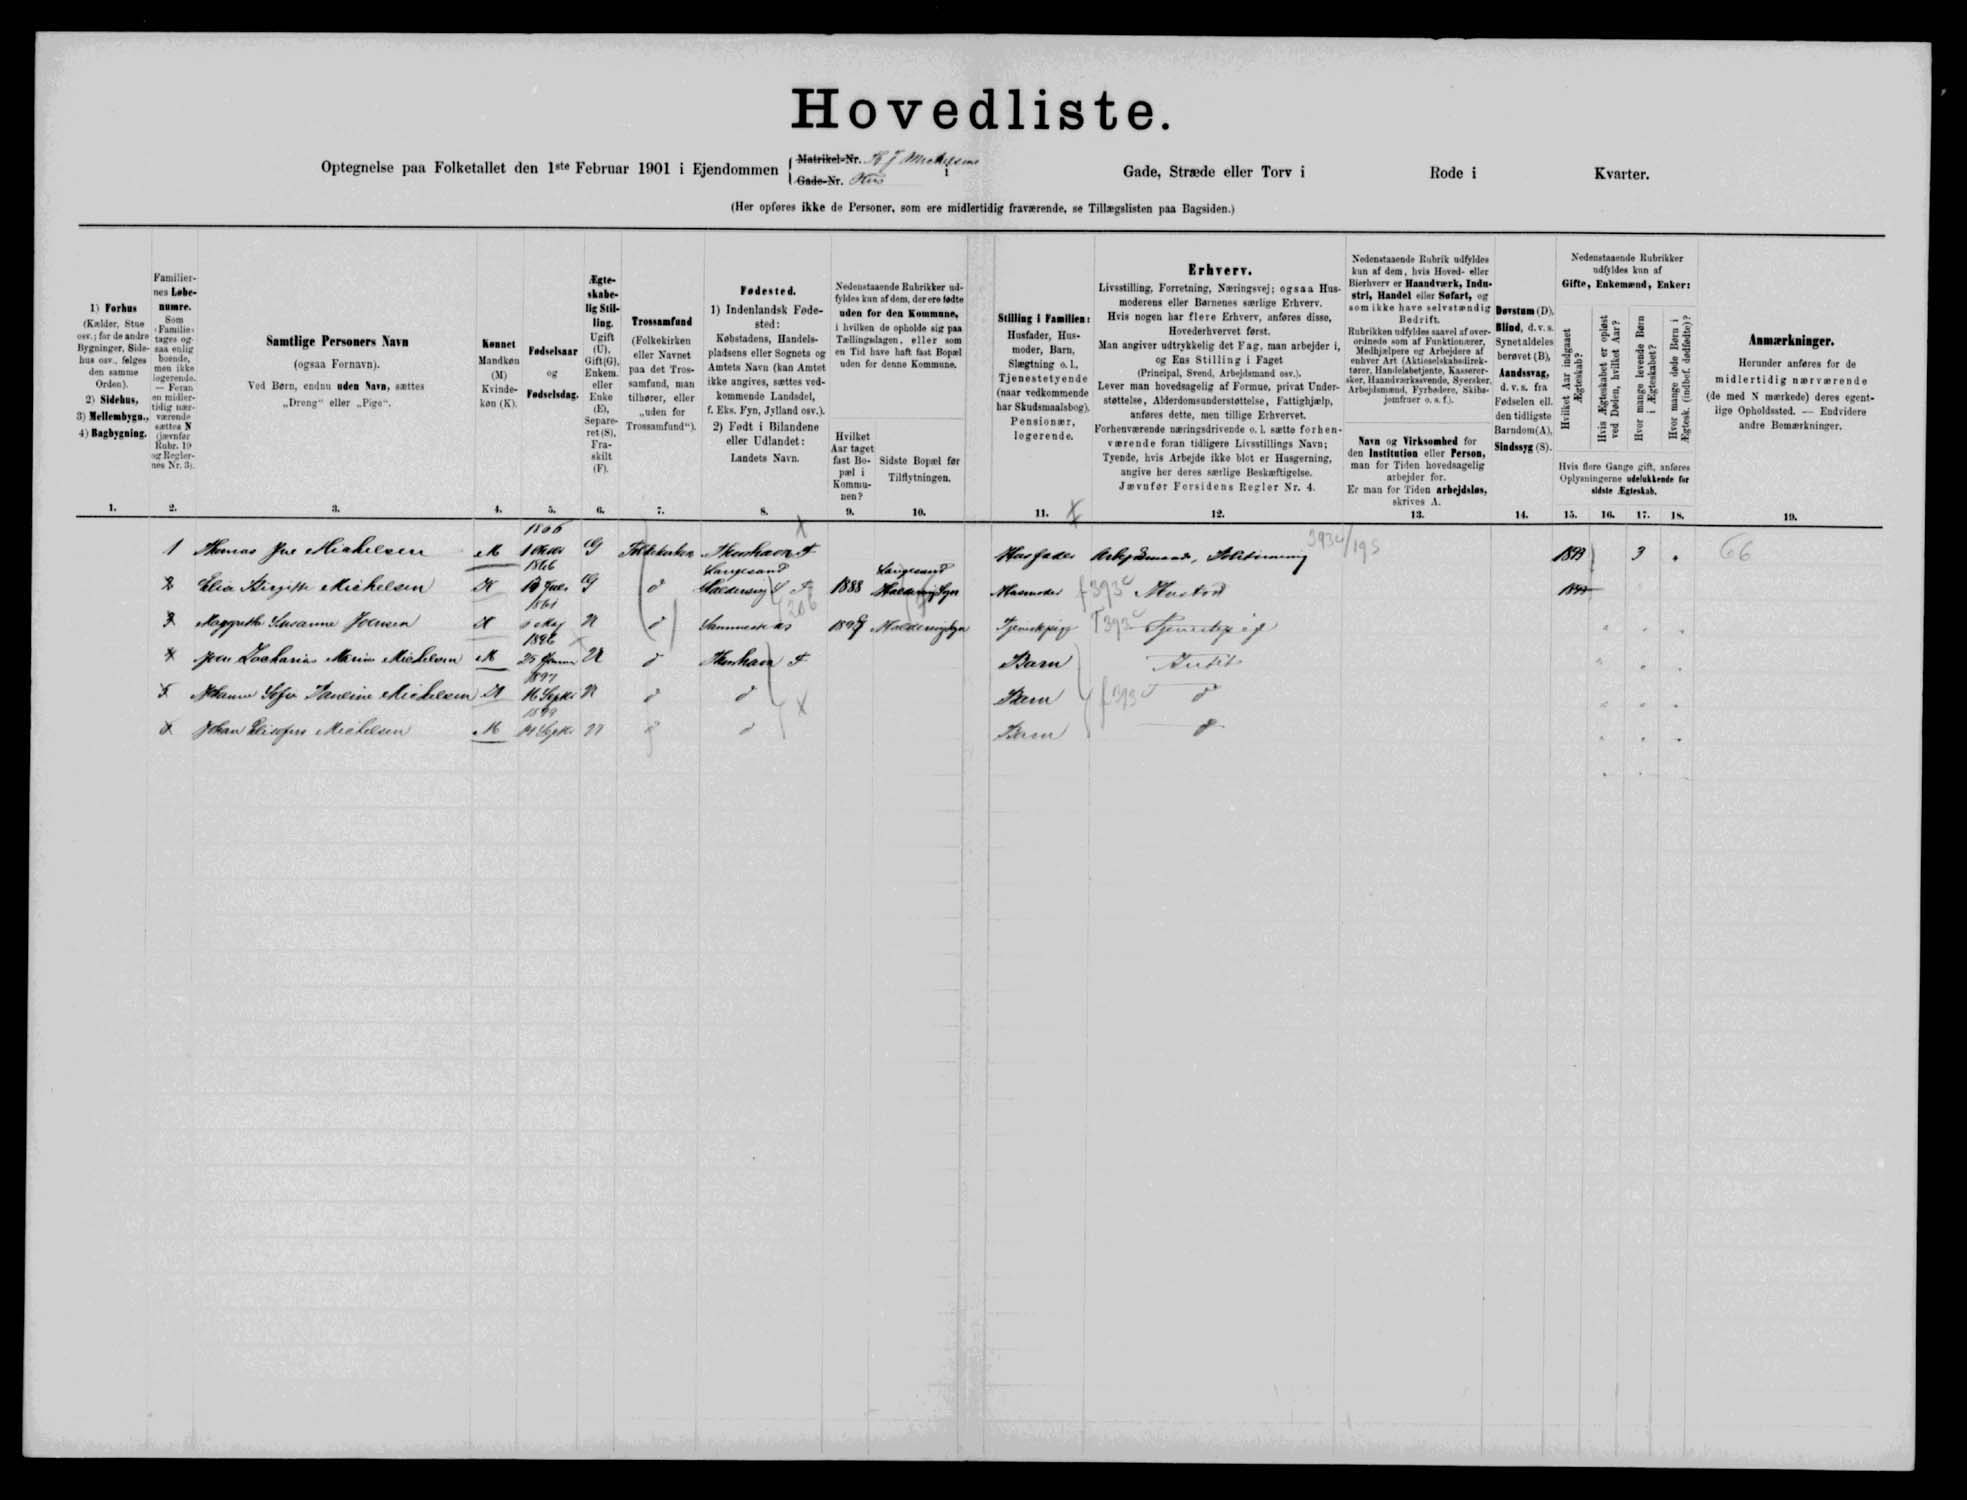 Hovedliste.
Optegnelse paa Folketallet den 1ste Februar 1901 i Ejendommen { Matrikel-Nr. Michelsens i Gade, Stræde eller Torv i Rode i Kvarter.
Gade-Nr. Hus
(Her opføres ikke de Personer, som ere midlertidig fraværende, se Tillægslisten paa Bagsiden.)
1) Forhus
(Kælder, Stue
osv.; for de andre
Bygninger, Side-
hus osv., følges
den samme
Orden).
2) Sidehus,
3) Mellembygn.,
4) Bagbygning.
Familier-
nes Løbe-
numre.
Som
»Familie«
tages og-
saa enlig
boende,
men ikke
logerende.
— Foran
en midler-
tidig nær-
værende
sættes N
(jævnfør
Rubr. 19
og Regler-
nes Nr. 3).
Samtlige Personers Navn
(ogsaa Fornavn).
Ved Børn, endnu uden Navn, sættes
„Dreng“ eller „Pige“.
Kønnet
Mandkøn
(M)
Kvinde-
køn (K).
Fødselsaar
og
Fødselsdag.
Ægte-
skabe-
lig Stil-
ling.
Ugift
(U),
Gift(G),
Enkem.
eller
Enke
(E),
Separe-
ret (S),
Fra-
skilt
(F).
Trossamfund
(Folkekirken
eller Navnet
paa det Tros-
samfund, man
tilhører, eller
„uden for
Trossamfund“).
Fødested.
1) Indenlandsk Føde-
sted:
Købstadens, Handels-
pladsens eller Sognets og
Amtets Navn (kan Amtet
ikke angives, sættes ved-
kommende Landsdel,
f. Eks. Fyn, Jylland osv.).
2) Født i Bilandene
eller Udlandet:
Landets Navn.
Nedenstaaende Rubrikker ud-
fyldes kun af dem, der ere fødte
uden for den Kommune,
i hvilken de opholde sig paa
Tællingsdagen, eller som
en Tid have haft fast Bopæl
uden for denne Kommune.
Hvilket
Aar taget
fast Bo-
pæl i
Kommu-
nen?
Sidste Bopæl før
Tilflytningen.
Stilling i Familien:
Husfader, Hus-
moder, Barn,
Slægtning o. l.,
Tjenestetyende
(naar vedkommende
har Skudsmaalsbog),
Pensionær,
logerende.
Erhverv.
Livsstilling, Forretning, Næringsvej; ogsaa Hus-
moderens eller Børnenes særlige Erhverv.
Hvis nogen har flere Erhverv, anføres disse,
Hovederhvervet først.
Man angiver udtrykkelig det Fag, man arbejder i,
og Ens Stilling i Faget
(Principal, Svend, Arbejdsmand osv.).
Lever man hovedsagelig af Formue, privat Under-
støttelse, Alderdomsunderstøttelse, Fattighjælp,
anføres dette, men tillige Erhvervet.
Forhenværende næringsdrivende o. l. sætte forhen-
værende foran tidligere Livsstillings Navn;
Tyende, hvis Arbejde ikke blot er Husgerning,
angive her deres særlige Beskæftigelse.
Jævnfør Forsidens Regler Nr. 4.
Nedenstaaende Rubrik udfyldes
kun af dem, hvis Hoved- eller
Bierhverv er Haandværk, Indu-
stri, Handel eller Søfart, og
som ikke have selvstændig
Bedrift.
Rubrikken udfyldes saavel af over-
ordnede som af Funktionærer,
Medhjælpere og Arbejdere af
enhver Art (Aktieselskabsdirek-
tører, Handelsbetjente, Kasserer-
sker, Haandværkssvende, Syersker,
Arbejdsmænd, Fyrbødere, Skibs-
jomfruer o. s. f.).
Navn og Virksomhed for
den Institution eller Person,
man for Tiden hovedsagelig
arbejder for.
Er man for Tiden arbejdsløs,
skrives A.
Døvstum (D),
Blind, d. v. s.
Synet aldeles
berøvet (B),
Aandssvag,
d. v. s. fra
Fødselen ell.
den tidligste
Barndom(A),
Sindssyg (S).
Nedenstaaende Rubrikker
udfyldes kun af
Gifte, Enkemænd, Enker:
Hvilket Aar indgaaet
Ægteskab?
Hvis Ægteskabet er opløst
ved Døden, hvilket Aar?
Hvor mange levende Børn
i Ægteskabet?
Hvor mange døde Børn i
Ægtesk. (indbef. dødfødte)?
Hvis flere Gange gift, anføres
Oplysningerne udelukkende for
sidste Ægteskab.
Anmærkninger.
Herunder anføres for de
midlertidig nærværende
(de med N mærkede) deres egent-
lige Opholdssted. — Endvidere
andre Bemærkninger.
1. 2. 3. 4. 5. 6. 7. 8. 9. 10. 11. 12. 13. 14. 15. 16. 17. 18. 19.
1 Thomas Michelsen M 1866 G Folkekirken Thorshavn F Husfader Arbejdsmand, 3 66
2 Michelsen K 1866 G d 1888 Husmoder Hustru
3 Susanne Joensen K U d Tjenestepige
4 Zacharias Marius Michelsen M 1896 U d Thorshavn F Barn
5 Johanne Sofie Michelsen K 1897 16 Septbr U d d Barn d
6 Johan Michelsen M 1899 U d d Barn d